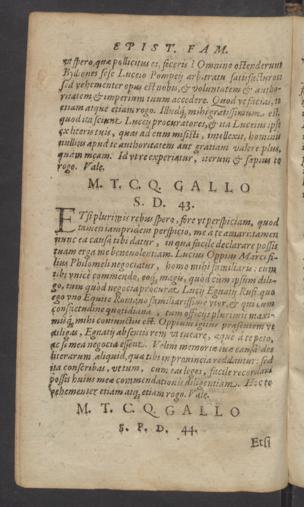 EPIST. FAM.
vt spero, quæ pollicitus es, feceris: Omnino ostenderunt
Byliones sese Luceio Pompeij arbitratu satisfacturos
sed vehementer opus est nobis, & voluntatem & autho-
ritatem & imperium tuum accedere. Quod vt facias, te
etiam atque etiam rogo. Illudq; mihi gratissimum est,
quod ita sciunt Luceij procuratores, & ita Luceius ipse
ex literis tuis, quas ad eum misisti, intellexit, hominis
nullius apud te authoritatem aut gratiam valere plus,
quàm meam. Id vt re experiatur, iterum & sæpius te
rogo. Vale.
M. T. C. Q. GALLO
S. D. 43.
ETsi plurimis rebus spero, fore vt perspiciam, quod
tamen iampridem perspicio, me à te amari: tamen
nunc ea causa tibi datur, in qua facile declarare possis
tuam erga me beneuolentiam. Lucius Oppius Marci fi-
lius Philomeli negociatur, homo mihi familiaris. eum
tibi vnicè commendo, eoq; magis, quod cum ipsum dili-
go, tum quòd negocia procurat Lucij Egnatij Rufi, quo
ego vno Equite Romano familiarissimè vtor, & qui cum
consuetudine quotidiana, tum officijs plurimis maxi-
misq; mihi coniunctus est. Oppium igitur præsentem vt
diligas, Egnatij absentis rem vt tueare, æquè à te peto,
ac si mea negocia essent. Velim memoriæ tuæ causa des
literarum aliquid, quæ tibi in prouincia reddantur: sed
ita conscribas, vt tum, cum eas leges, facile recordari
possis huius meæ commendationis diligentiam. Hoc te
vehementer etiam atq; etiam rogo. Vale.
M. T. C. Q. GALLO
S. P. D. 44.
Etsi